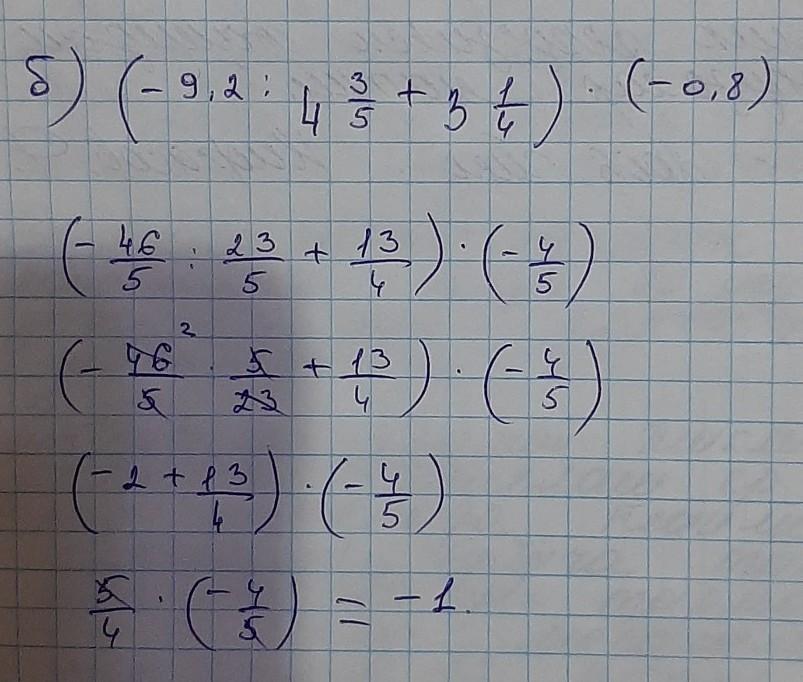 б) (- 9,2 : 4 3/5 + 3 1/4) · (-0,8)
(- 46/5 : 23/5 + 13/4) · (- 4/5)
(- 46/5 ² · 5/23 + 13/4) · (- 4/5)
(- 2 + 13/4) · (- 4/5)
5/4 · (- 4/5) = - 1.